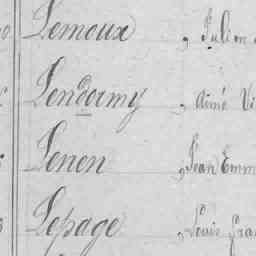 Lemoux , Julien
Lendormy , Aimé Vi
Lenen , Jean Emm
Lepage , Louis Fra